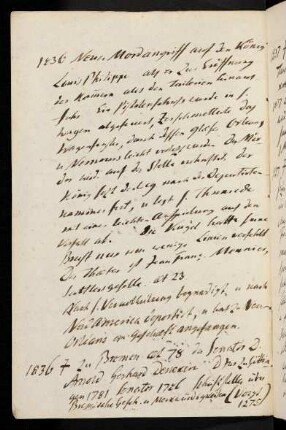 1836 Neuer Mordangriff auf den König
Louis Philippe als er zur Eröffnung
der Kammern aus den Tuilerien hinaus
fuhr. Ein Pistolenschuss wurde in s.
Wagen abgefeuert, zerschmetterte das
Wagenfenster, durch dessen Gläser Orleans
u. Nemours leicht verletzt wurden. Der Mör
der ward auf der Stelle verhaftet. Der
König setzte den Weg nach der Deputirten
kammer fort, u. legt s. Thronrede
mit einer leichten Anspielung auf den
Vorfall ab. Die Kugel hatte seine
Brust nur um wenige Linien verfehlt
Der Thäter ist Jean Franz. Meunier,
Sattlergeselle. at 23
ward s. Verurtheilung begnadigt, u. nach
Nordamerica deportirt, u. hat zu Neu-
Orleans ein Geschäft angefangen.
1836 † Zu Bremen at. 78 der Senator D.
Arnold Gerhard Deneken D. Jur. zu Göttin
gen 1781 Senator 1796 Schriftsteller über
Bremische Gesch. u. Merkwürdigkeiten (Vergl